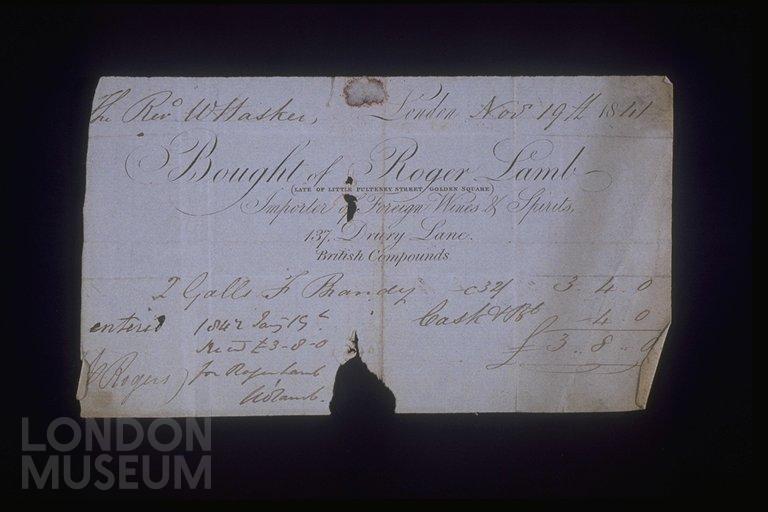 The Revd W Hasker, London Novr 19th 1841
Bought of Roger Lamb
(LATE OF LITTLE PULTENEY STREET GOLDEN SQUARE)
Importer of Foreign Wines & Spirits,
137, Drury Lane.
British Compounds
2 Galls F Brandy 32/ 3.4.0
Cask & 4.0
entered 1842 Jany 19th £3..8..0
Recd £3-8-0
(Rogers) for Roger Lamb
Lamb.
LONDON
MUSEUM